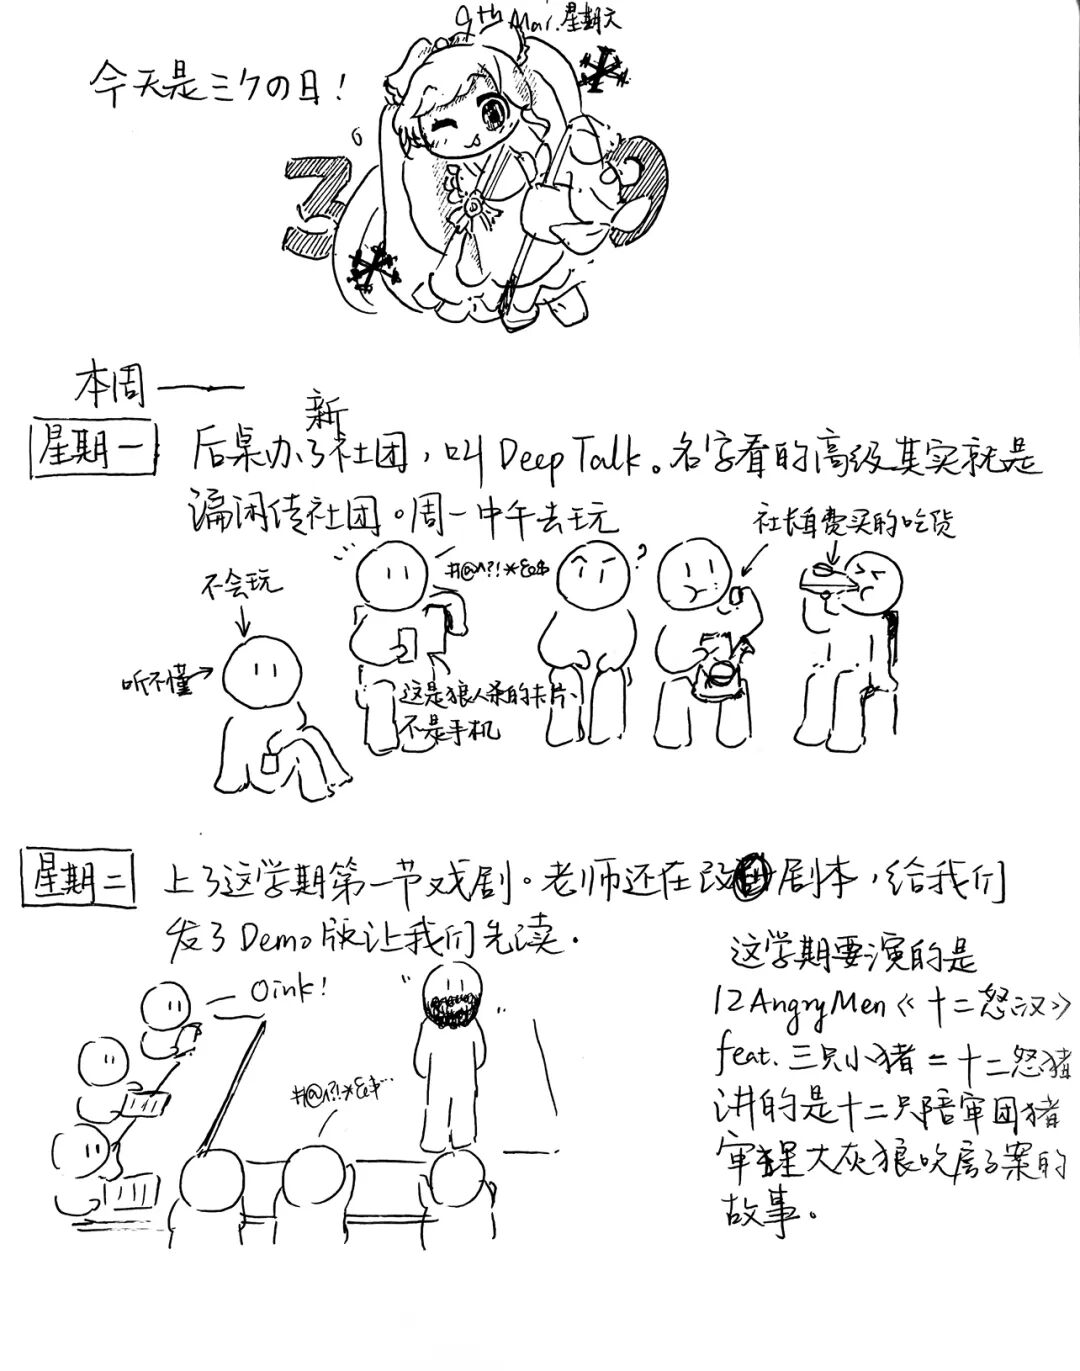 9th Mar. 星期六
今天是ミクの日！
3 9
本周——
新
星期一 后桌办了社团，叫DeepTalk。名字看的高级其实就是
漏闲传社团。周一中午去玩
社长自费买的吃货
#@^?!*&$
?
不会玩
听不懂
这是狼人杀的卡片、
不是手机
星期二 上了这学期第一节戏剧。老师还在改剧本，给我们
发了Demo版让我们先读.
Oink!
#@!?!*&$…
这学期要演的是
12AngryMen《十二怒汉》
feat.三只小猪=十二怒猪
讲的是十二只陪审团猪
审 大灰狼吹房子案的
故事。